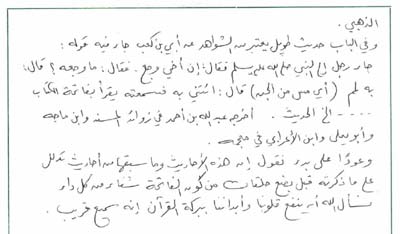 الذهبي .
وفي الباب حديث طويل يعتبر من الشواهد عن أبي بن كعب جاء فيه قوله :
جاء رجل إلى النبي صلى الله عليه وسلم فقال : إن أخي وجع . فقال : ما وجعه ؟ قال :
به لمم ( أي مس من الجن ) قال : ائتني به فسمعته يقرأ بفاتحة الكتاب
.... الخ الحديث . أخرجه عبد الله بن أحمد في زوائد المسند وابن ماجه
وأبو يعلى وابن الأعرابي في معجمه .
وعودًا على بدء نقول إن هذه الأحاديث وما سبقها من أحاديث تدلل
على ما ذكرته قبل بضع حلقات من كون الفاتحة شفاء من كل داء
نسأل الله أن ينفع قلوبنا وأبداننا ببركة القرآن إنه سميع قريب .